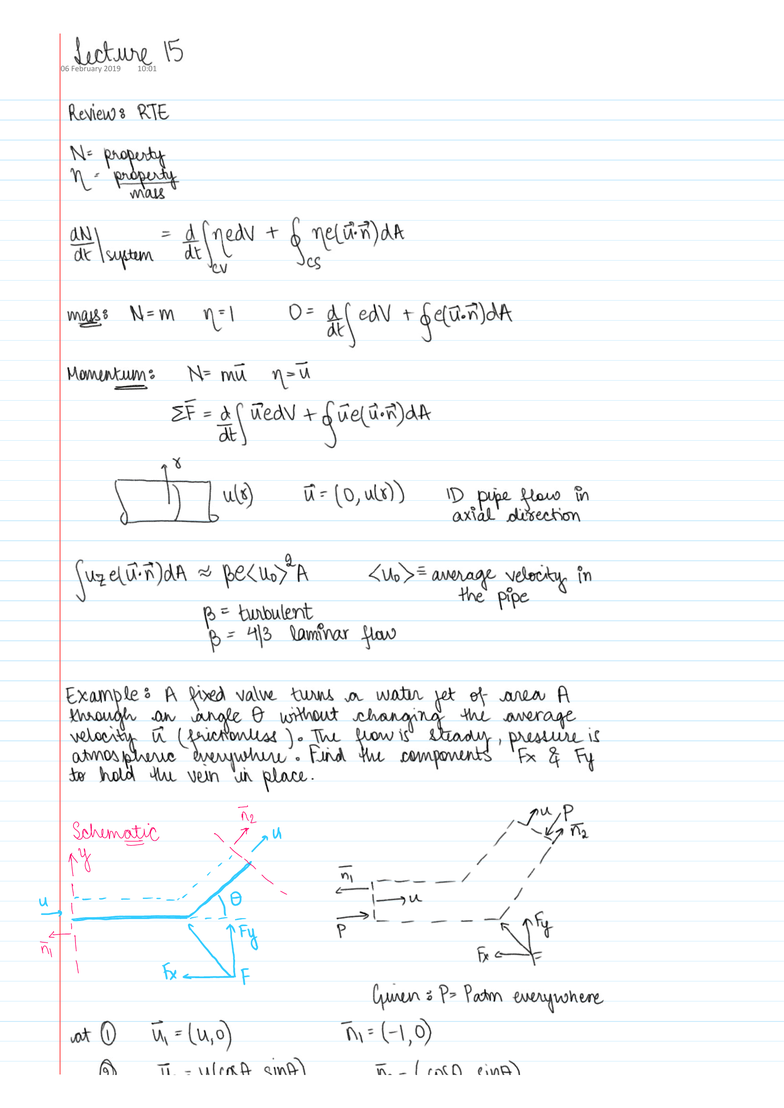 Lecture 15
06 February 2019 10:01
Review: RTE
N= property
η = property/mass
dN/dt|system = d/dt ∫CV ηρdV + ∮CS ηρ(u⃗·n⃗)dA
mass: N=m η=1 0= d/dt ∫ ρdV + ∮ρ(u⃗·n⃗)dA
Momentum: N= mu⃗ η=u⃗
ΣF⃗ = d/dt ∫ u⃗ρdV + ∮u⃗ρ(u⃗·n⃗)dA
r
u(r) u⃗ = (0, u(r)) 1D pipe flow in
axial direction
∫uzρ(u⃗·n⃗)dA ≈ βρ<u₀>²A <u₀> ≡ average velocity in
the pipe
β = turbulent
β = 4/3 laminar flow
Example: A fixed valve turns a water jet of area A
through an angle θ without changing the average
velocity u⃗ (frictionless). The flow is steady, pressure is
atmospheric everywhere. Find the components Fx & Fy
to hold the vein in place.
Schematic
y
n̄2
u
u
n̄1
θ
Fy
Fx
F
u
P
n̄2
n̄1
u
P
Fy
Fx
F
Given: P= Patm everywhere
at ① u⃗₁ = (u,0) n̄₁ = (-1,0)